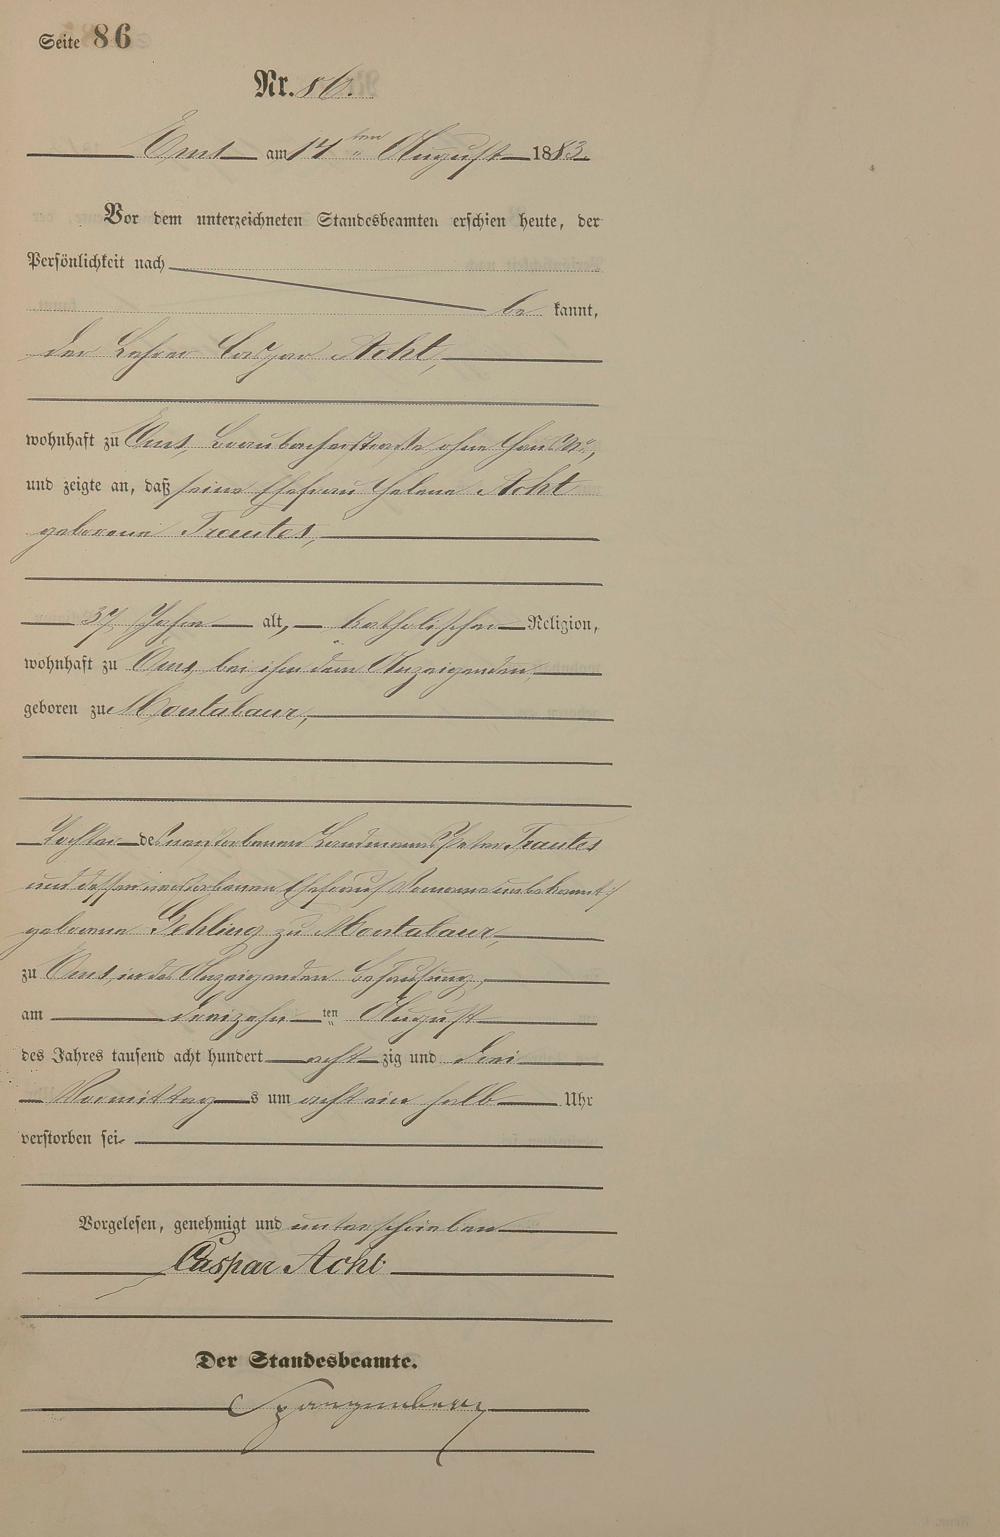 Seite 86
Nr. 86.
Ems am 14ten August 1883.
Vor dem unterzeichneten Standesbeamten erschien heute, der
Persönlichkeit nach
be kannt,
der Lehrer Caspar Acht,
wohnhaft zu Ems, Braubacherstraße ohne Haus No,
und zeigte an, daß seine Ehefrau Helene Acht
geborene Trautes,
37 Jahre alt, katholischer Religion,
wohnhaft zu Ems, bei ihm dem Anzeigenden,
geboren zu Montabaur,
Tochter des verstorbenen Landmanns Peter Trautes
und dessen verstorbenen Ehefrau (Vorname unbekannt)
geborene Gehling zu Montabaur,
zu Ems, in des Anzeigenden Behausung,
am dreizehnten August
des Jahres tausend acht hundert acht zig und drei
Vormittags um acht ein halb Uhr
verstorben sei
Vorgelesen, genehmigt und unterschrieben
Caspar Acht
Der Standesbeamte.
Spangenberg